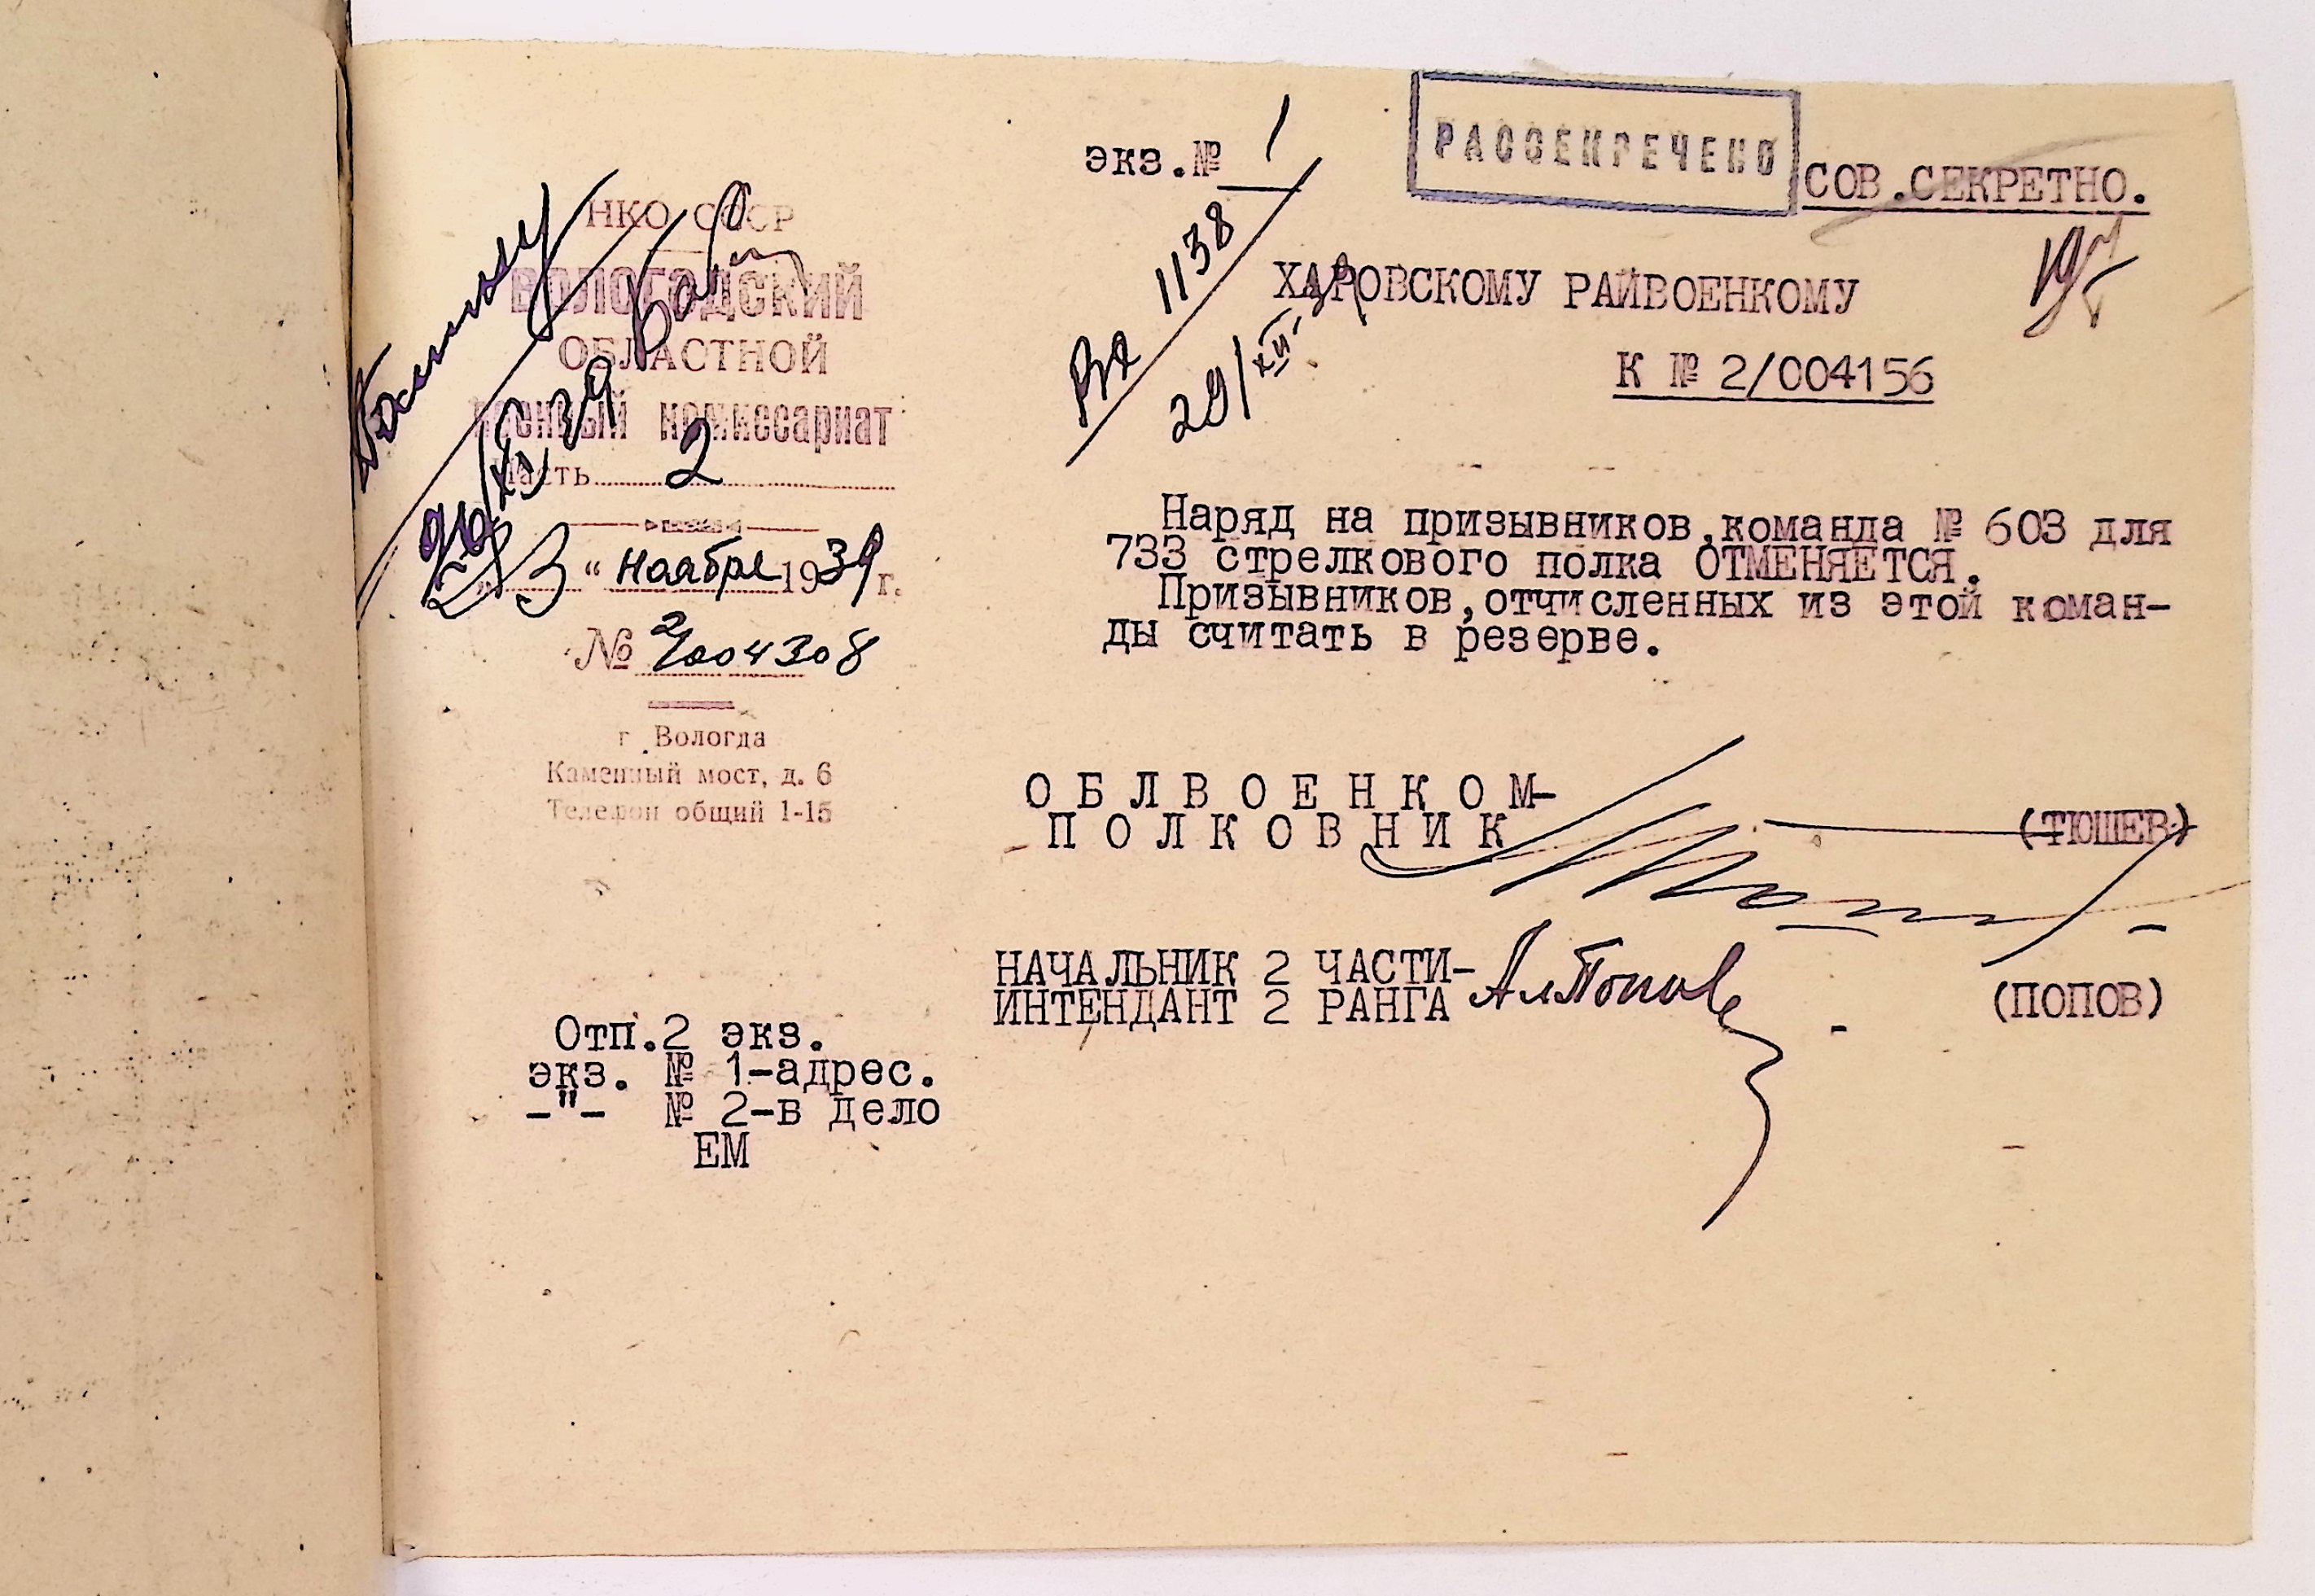 экз.№ 1
РАССЕКРЕЧЕНО
СОВ.СЕКРЕТНО.
НКО СССР
ВОЛОГОДСКИЙ
ОБЛАСТНОЙ
военный комиссариат
Часть 2
"23" ноября 1939 г.
№ 2/004308
г. Вологда
Каменный мост, д. 6
Телефон общий 1-15
Вх 1138
29/XII-39
197
ХАРОВСКОМУ РАЙВОЕНКОМУ
К № 2/004156
Наряд на призывников,команда № 603 для
733 стрелкового полка ОТМЕНЯЕТСЯ.
Призывников,отчисленных из этой коман-
ды считать в резерве.
ОБЛВОЕНКОМ-
ПОЛКОВНИК (ТЮШЕВ)
НАЧАЛЬНИК 2 ЧАСТИ-
ИНТЕНДАНТ 2 РАНГА (ПОПОВ)
Отп.2 экз.
экз. № 1-адрес.
-"- № 2-в дело
ЕМ